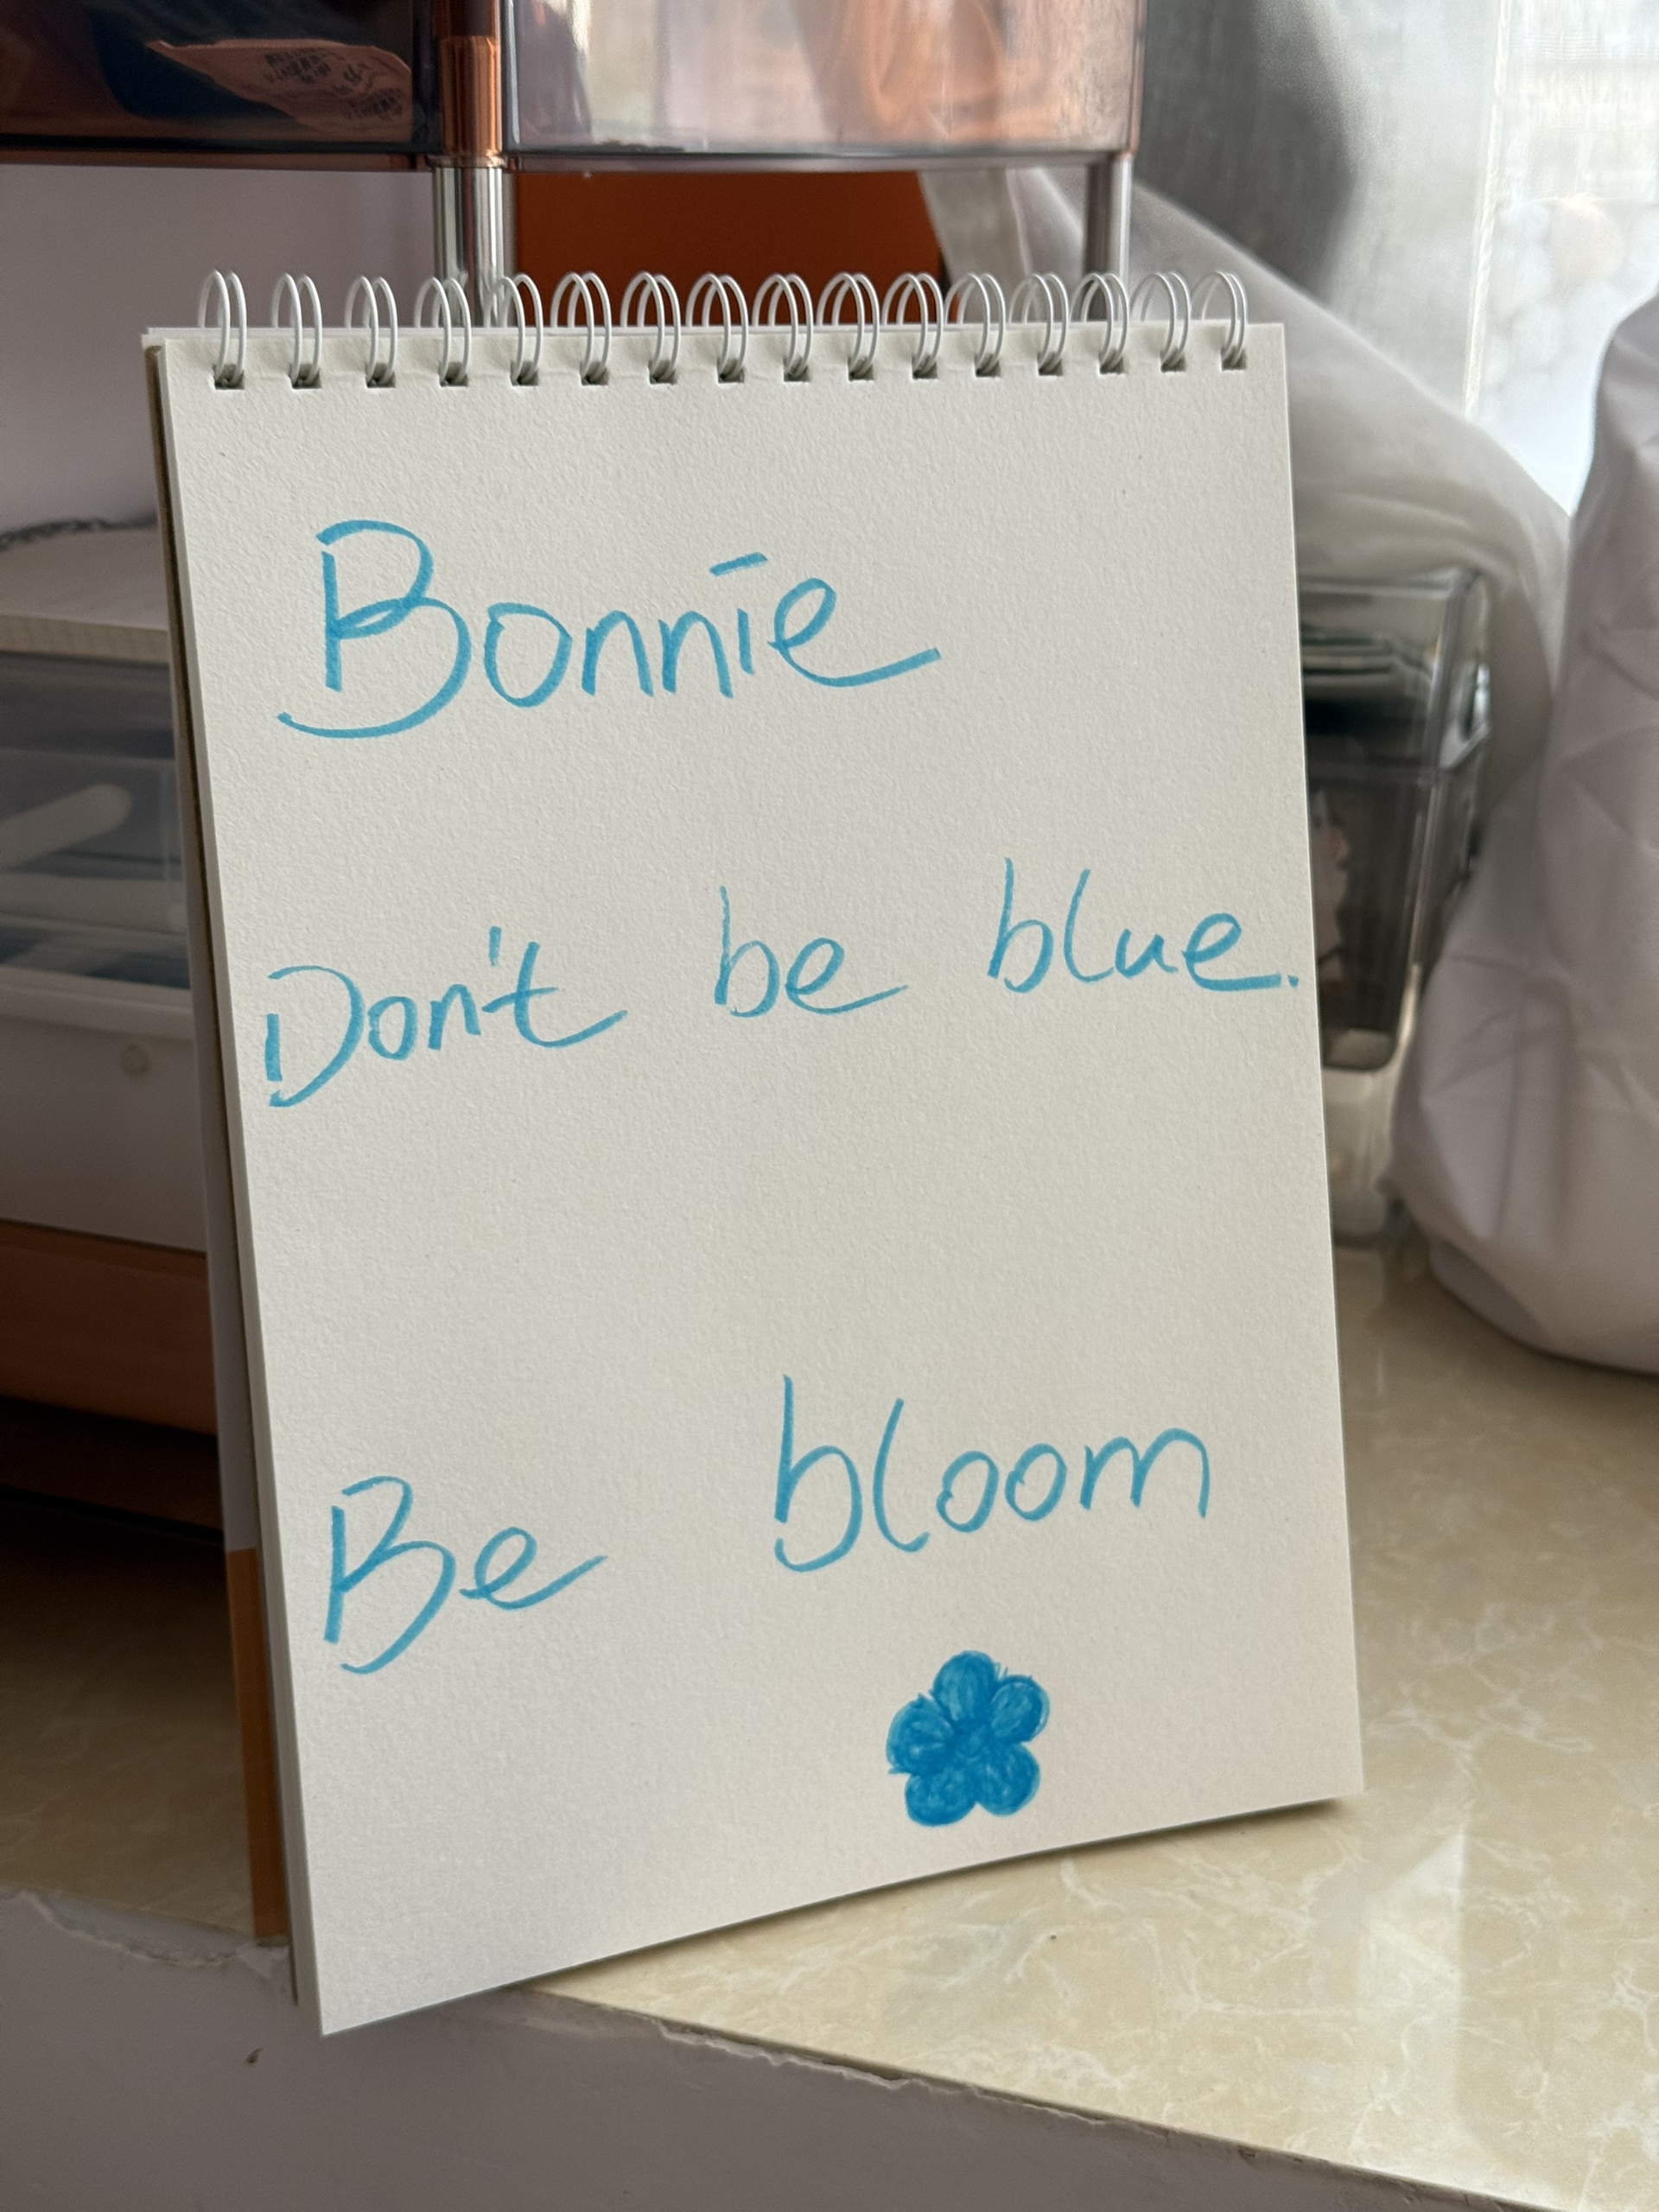 Bonnie
Don't be blue.
Be bloom